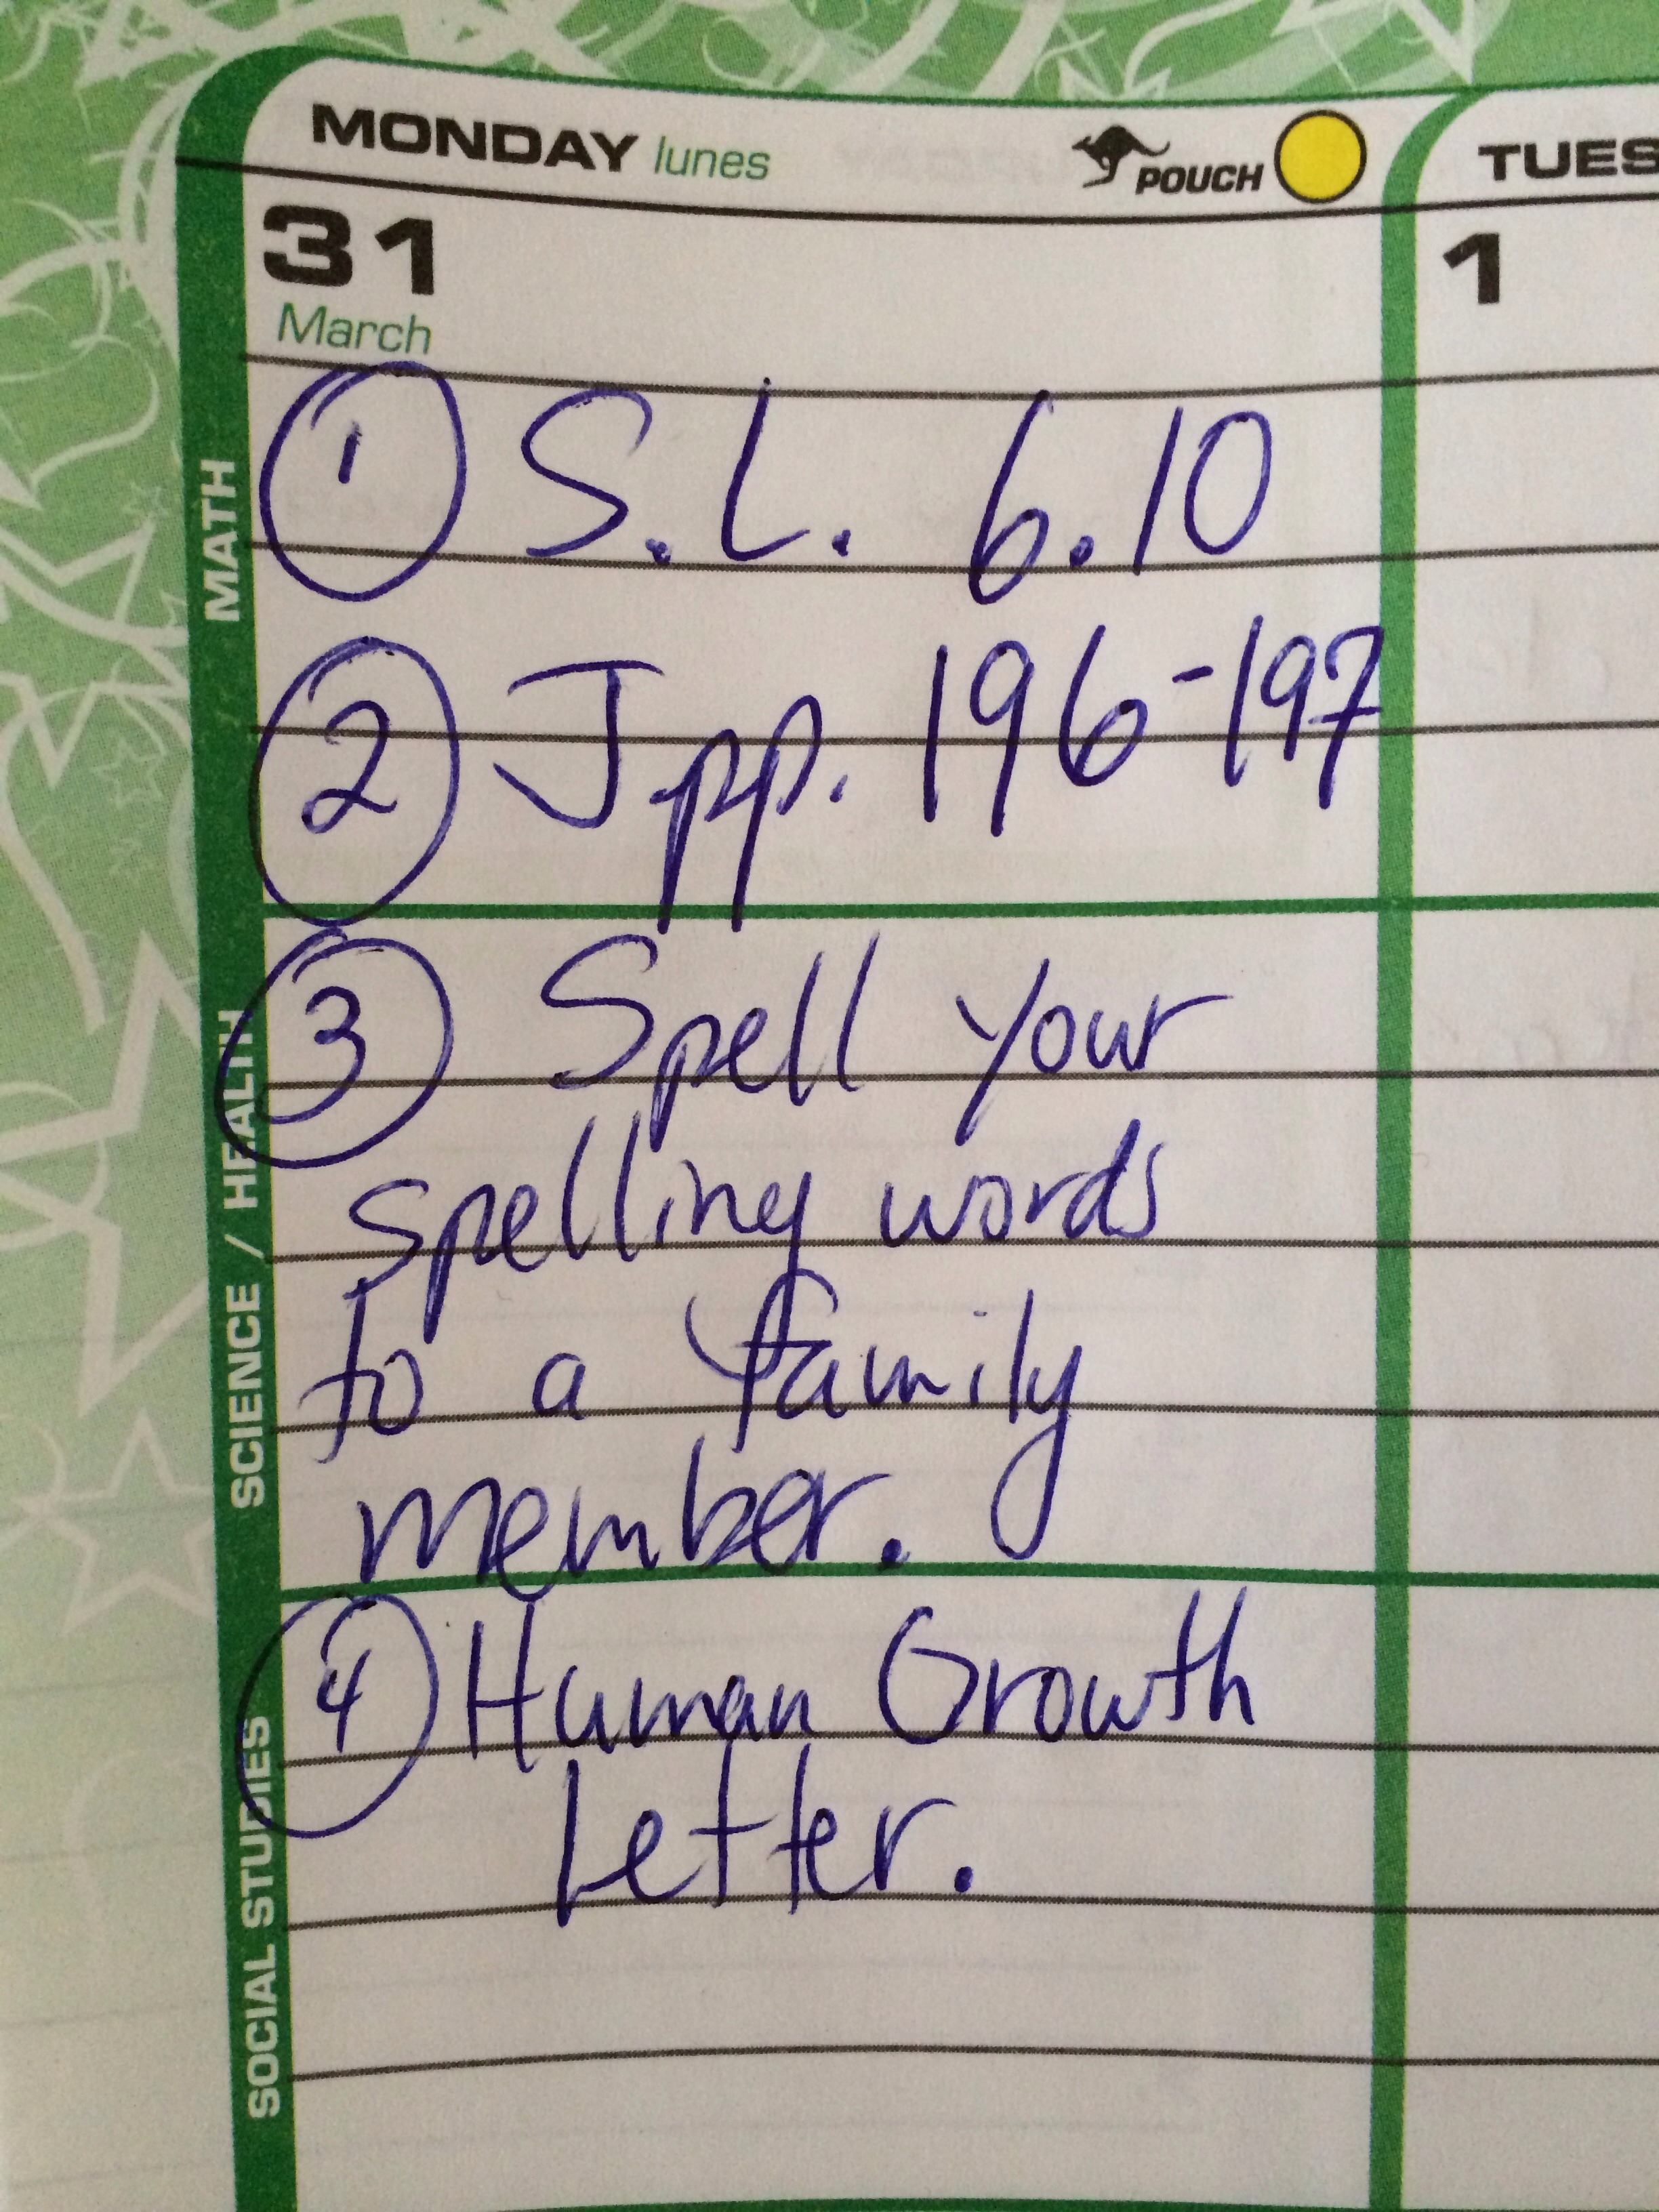 MONDAY lunes POUCH TUES
31 1
March
MATH
① S.L. 6.10
② J pp. 196-197
SCIENCE / HEALTH
③ Spell your
spelling words
to a family
member.
SOCIAL STUDIES
④ Human Growth
Letter.